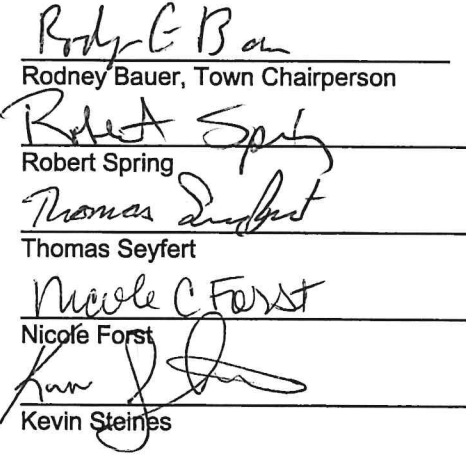 Rodney E Bauer
Rodney Bauer, Town Chairperson
Robert Spring
Robert Spring
Thomas Seyfert
Thomas Seyfert
Nicole C Forst
Nicole Forst
Kevin
Kevin Steines